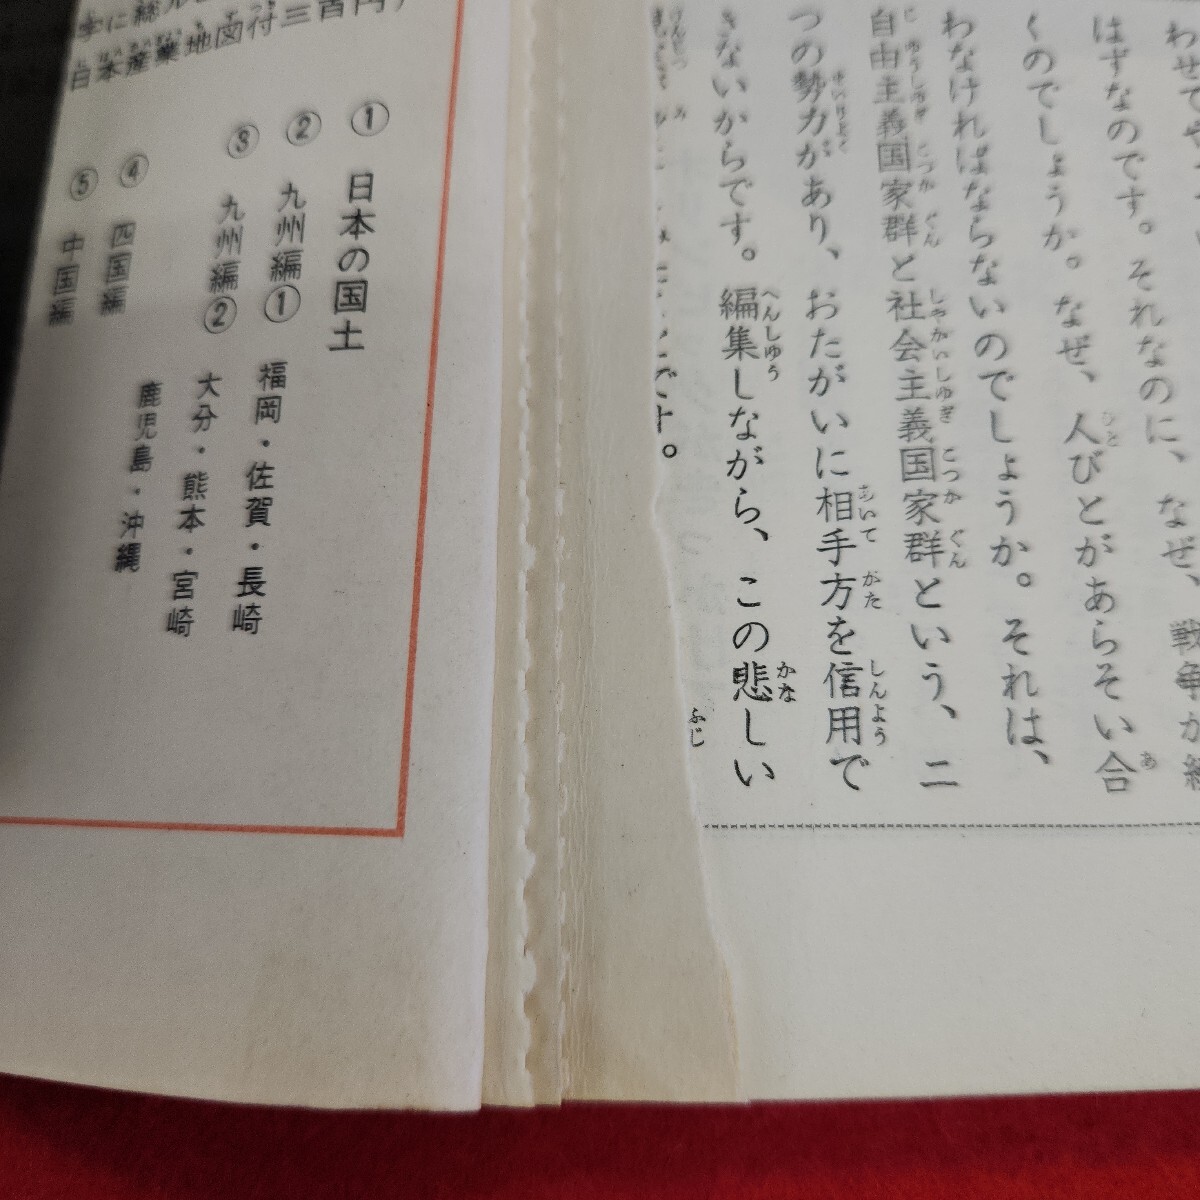 わせてや
はずなのです。それなのに、なぜ、戦争が
くのでしょうか。なぜ、人びとがあらそい合
わなければならないのでしょうか。それは、
自由主義国家群と社会主義国家群という、二
つの勢力があり、おたがいに相手方を信用で
きないからです。編集しながら、この悲しい
です。
に総ル
日本産業地図付三百円
① 日本の国土
② 九州編① 福岡・佐賀・長崎
③ 九州編② 大分・熊本・宮崎
鹿児島・沖縄
④ 四国編
⑤ 中国編